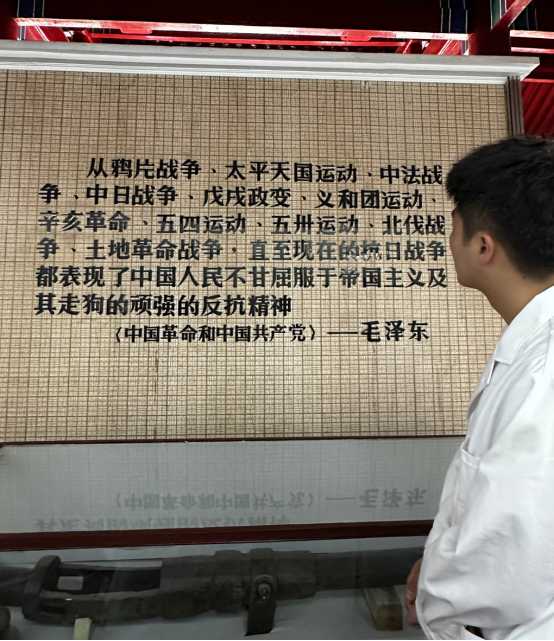 从鸦片战争、太平天国运动、中法战
争、中日战争、戊戌政变、义和团运动、
辛亥革命、五四运动、五卅运动、北伐战
争、土地革命战争，直至现在的抗日战争
都表现了中国人民不甘屈服于帝国主义及
其走狗的顽强的反抗精神
《中国革命和中国共产党》——毛泽东